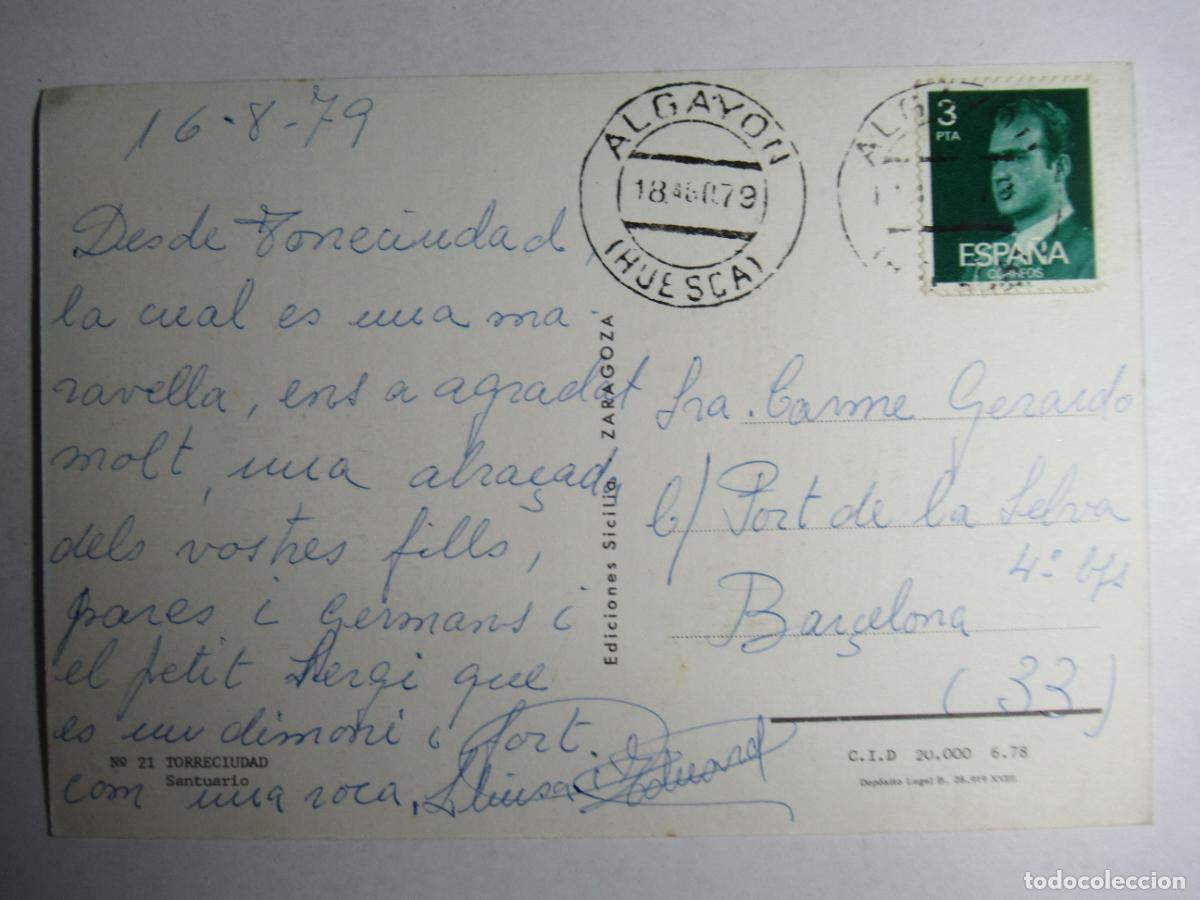 16-8-79
Desde Torreciudad,
la cual es una ma-
ravella, ens a agradat
molt, una abraçada
dels vostres fills,
pares i germans i
el petit Sergi que
es un dimoni i fort.
com una roca, Lluisa i Eduard
Nº 21 TORRECIUDAD
Santuario
Ediciones Sicilia ZARAGOZA
ALGAYON
18 79
(HUESCA)
ALG
3
PTA
ESPAÑA
CORREOS
Sra. Carme Gerardo
c/ Port de la Selva
4º
Barçelona
(33)
C.I.D 20.000 6.78
Depósito Legal B. 28.919 XVIII
todocoleccion